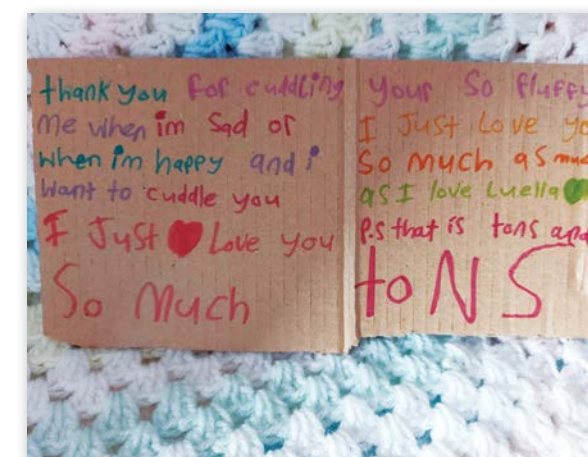 thank you for cuddling
me when im sad or
when im happy and i
want to cuddle you
I Just Love you
So Much
your So fluffy
I Just Love yo
So much as muc
as I love Luella
P.S that is tons and
toNS